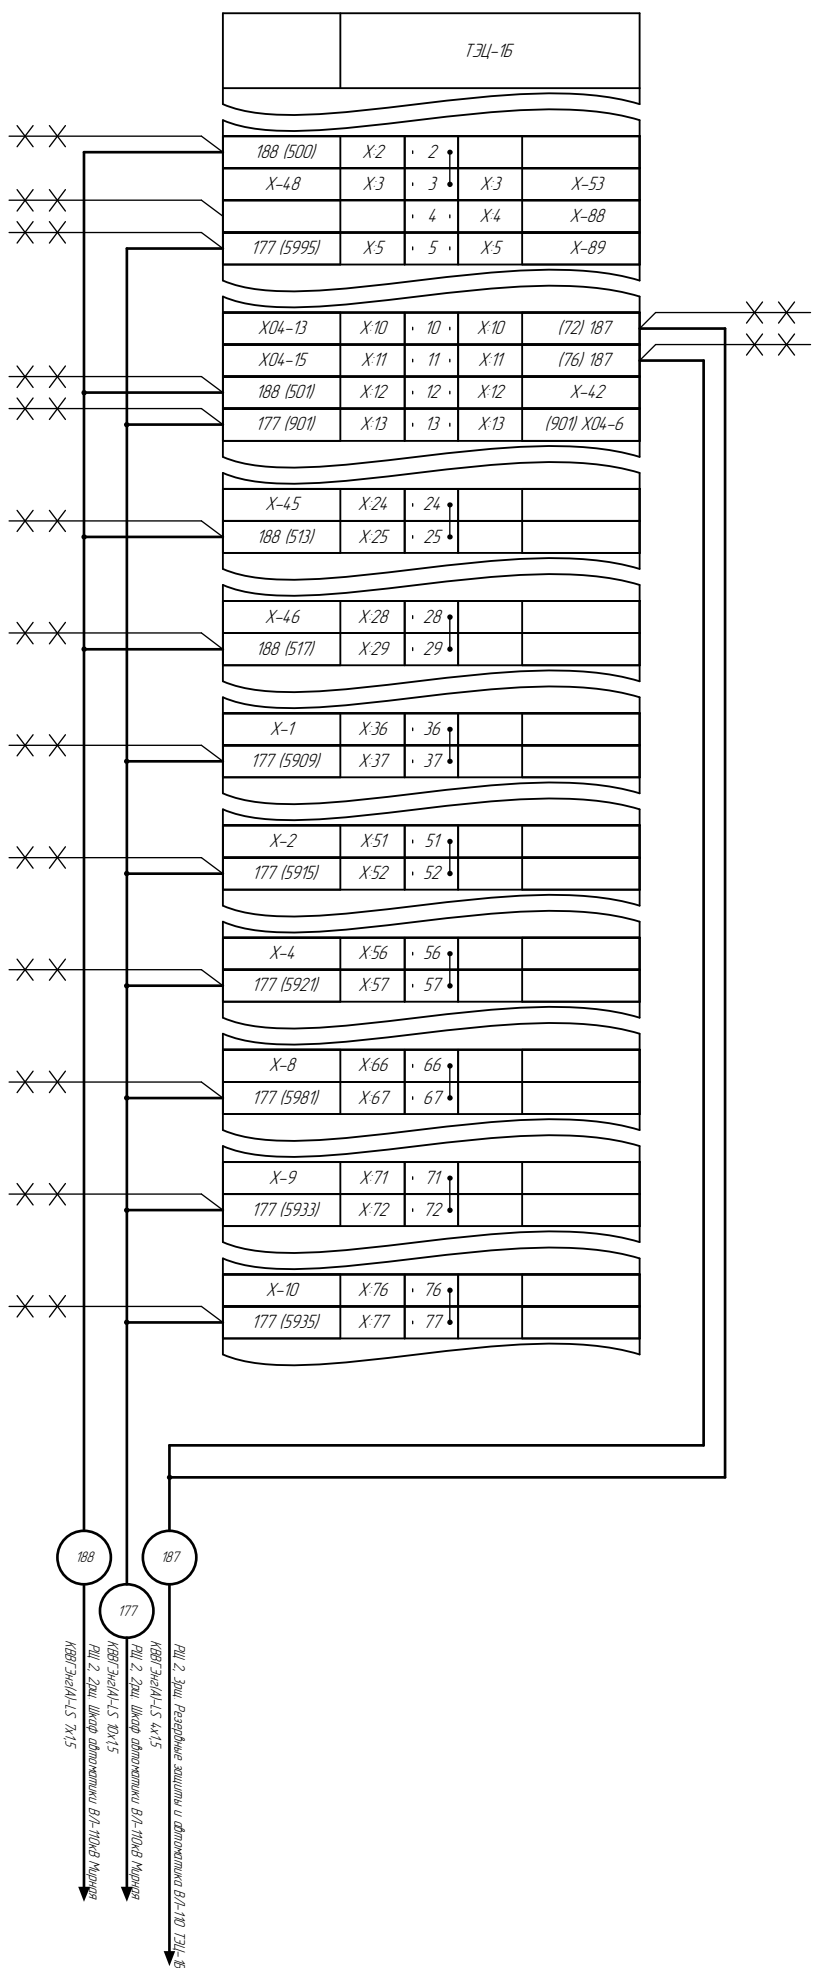 ТЭЦ-1Б
188 (500) X:2 2
X-48 X:3 3 X:3 X-53
4 X:4 X-88
177 (5995) X:5 5 X:5 X-89
X04-13 X:10 10 X:10 (72) 187
X04-15 X:11 11 X:11 (76) 187
188 (501) X:12 12 X:12 X-42
177 (901) X:13 13 X:13 (901) X04-6
X-45 X:24 24
188 (513) X:25 25
X-46 X:28 28
188 (517) X:29 29
X-1 X:36 36
177 (5909) X:37 37
X-2 X:51 51
177 (5915) X:52 52
X-4 X:56 56
177 (5921) X:57 57
X-8 X:66 66
177 (5981) X:67 67
X-9 X:71 71
177 (5933) X:72 72
X-10 X:76 76
177 (5935) X:77 77
188
187
177
КВВГЭнг(А)-LS 7х1,5
РЩ 2, 2рщ Шкаф автоматики ВЛ-110кВ Мирная
КВВГЭнг(А)-LS 10х1,5
РЩ 2, 2рщ Шкаф автоматики ВЛ-110кВ Мирная
КВВГЭнг(А)-LS 4х1,5
РЩ 2, 3рщ Резервные защиты и автоматика ВЛ-110 ТЭЦ-1Б